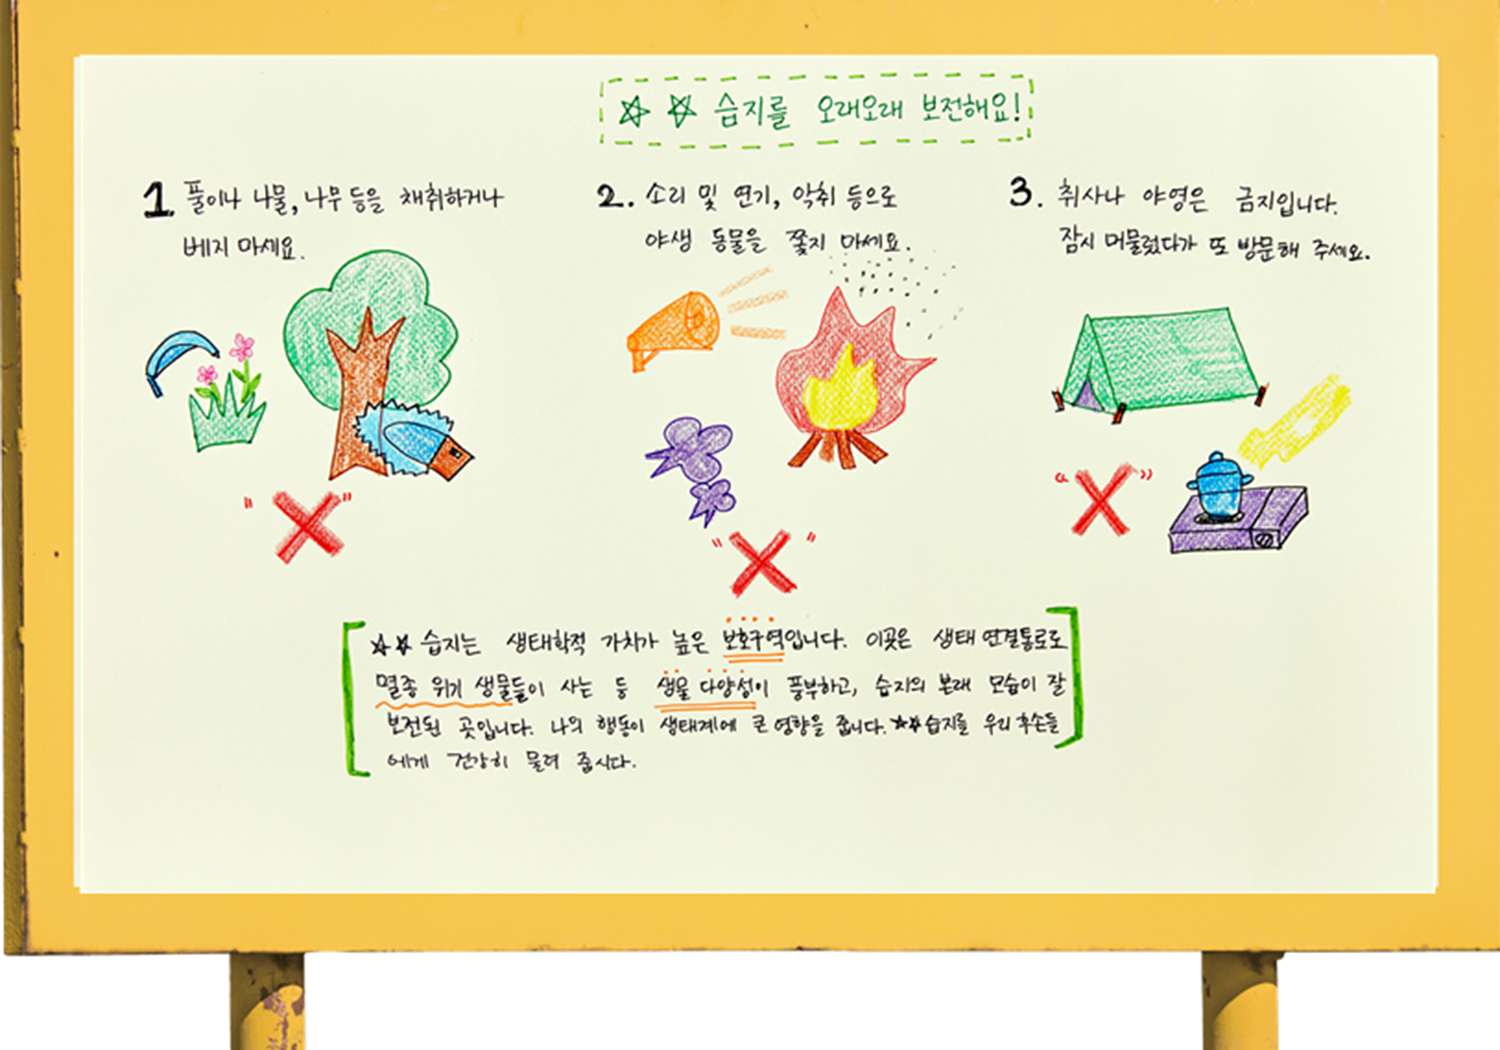 ☆☆ 습지를 오래오래 보전해요!
1. 풀이나 나물, 나무 등을 채취하거나
베지 마세요.
2. 소리 및 연기, 악취 등으로
야생 동물을 쫓지 마세요.
3. 취사나 야영은 금지입니다.
잠시 머물렀다가 또 방문해 주세요.
" X "
" X "
" X "
☆☆ 습지는 생태학적 가치가 높은 보호구역입니다. 이곳은 생태 연결통로로
멸종 위기 생물들이 사는 등 생물 다양성이 풍부하고, 습지의 본래 모습이 잘
보전된 곳입니다. 나의 행동이 생태계에 큰 영향을 줍니다. ☆☆ 습지를 우리 후손들
에게 건강히 물려 줍시다.